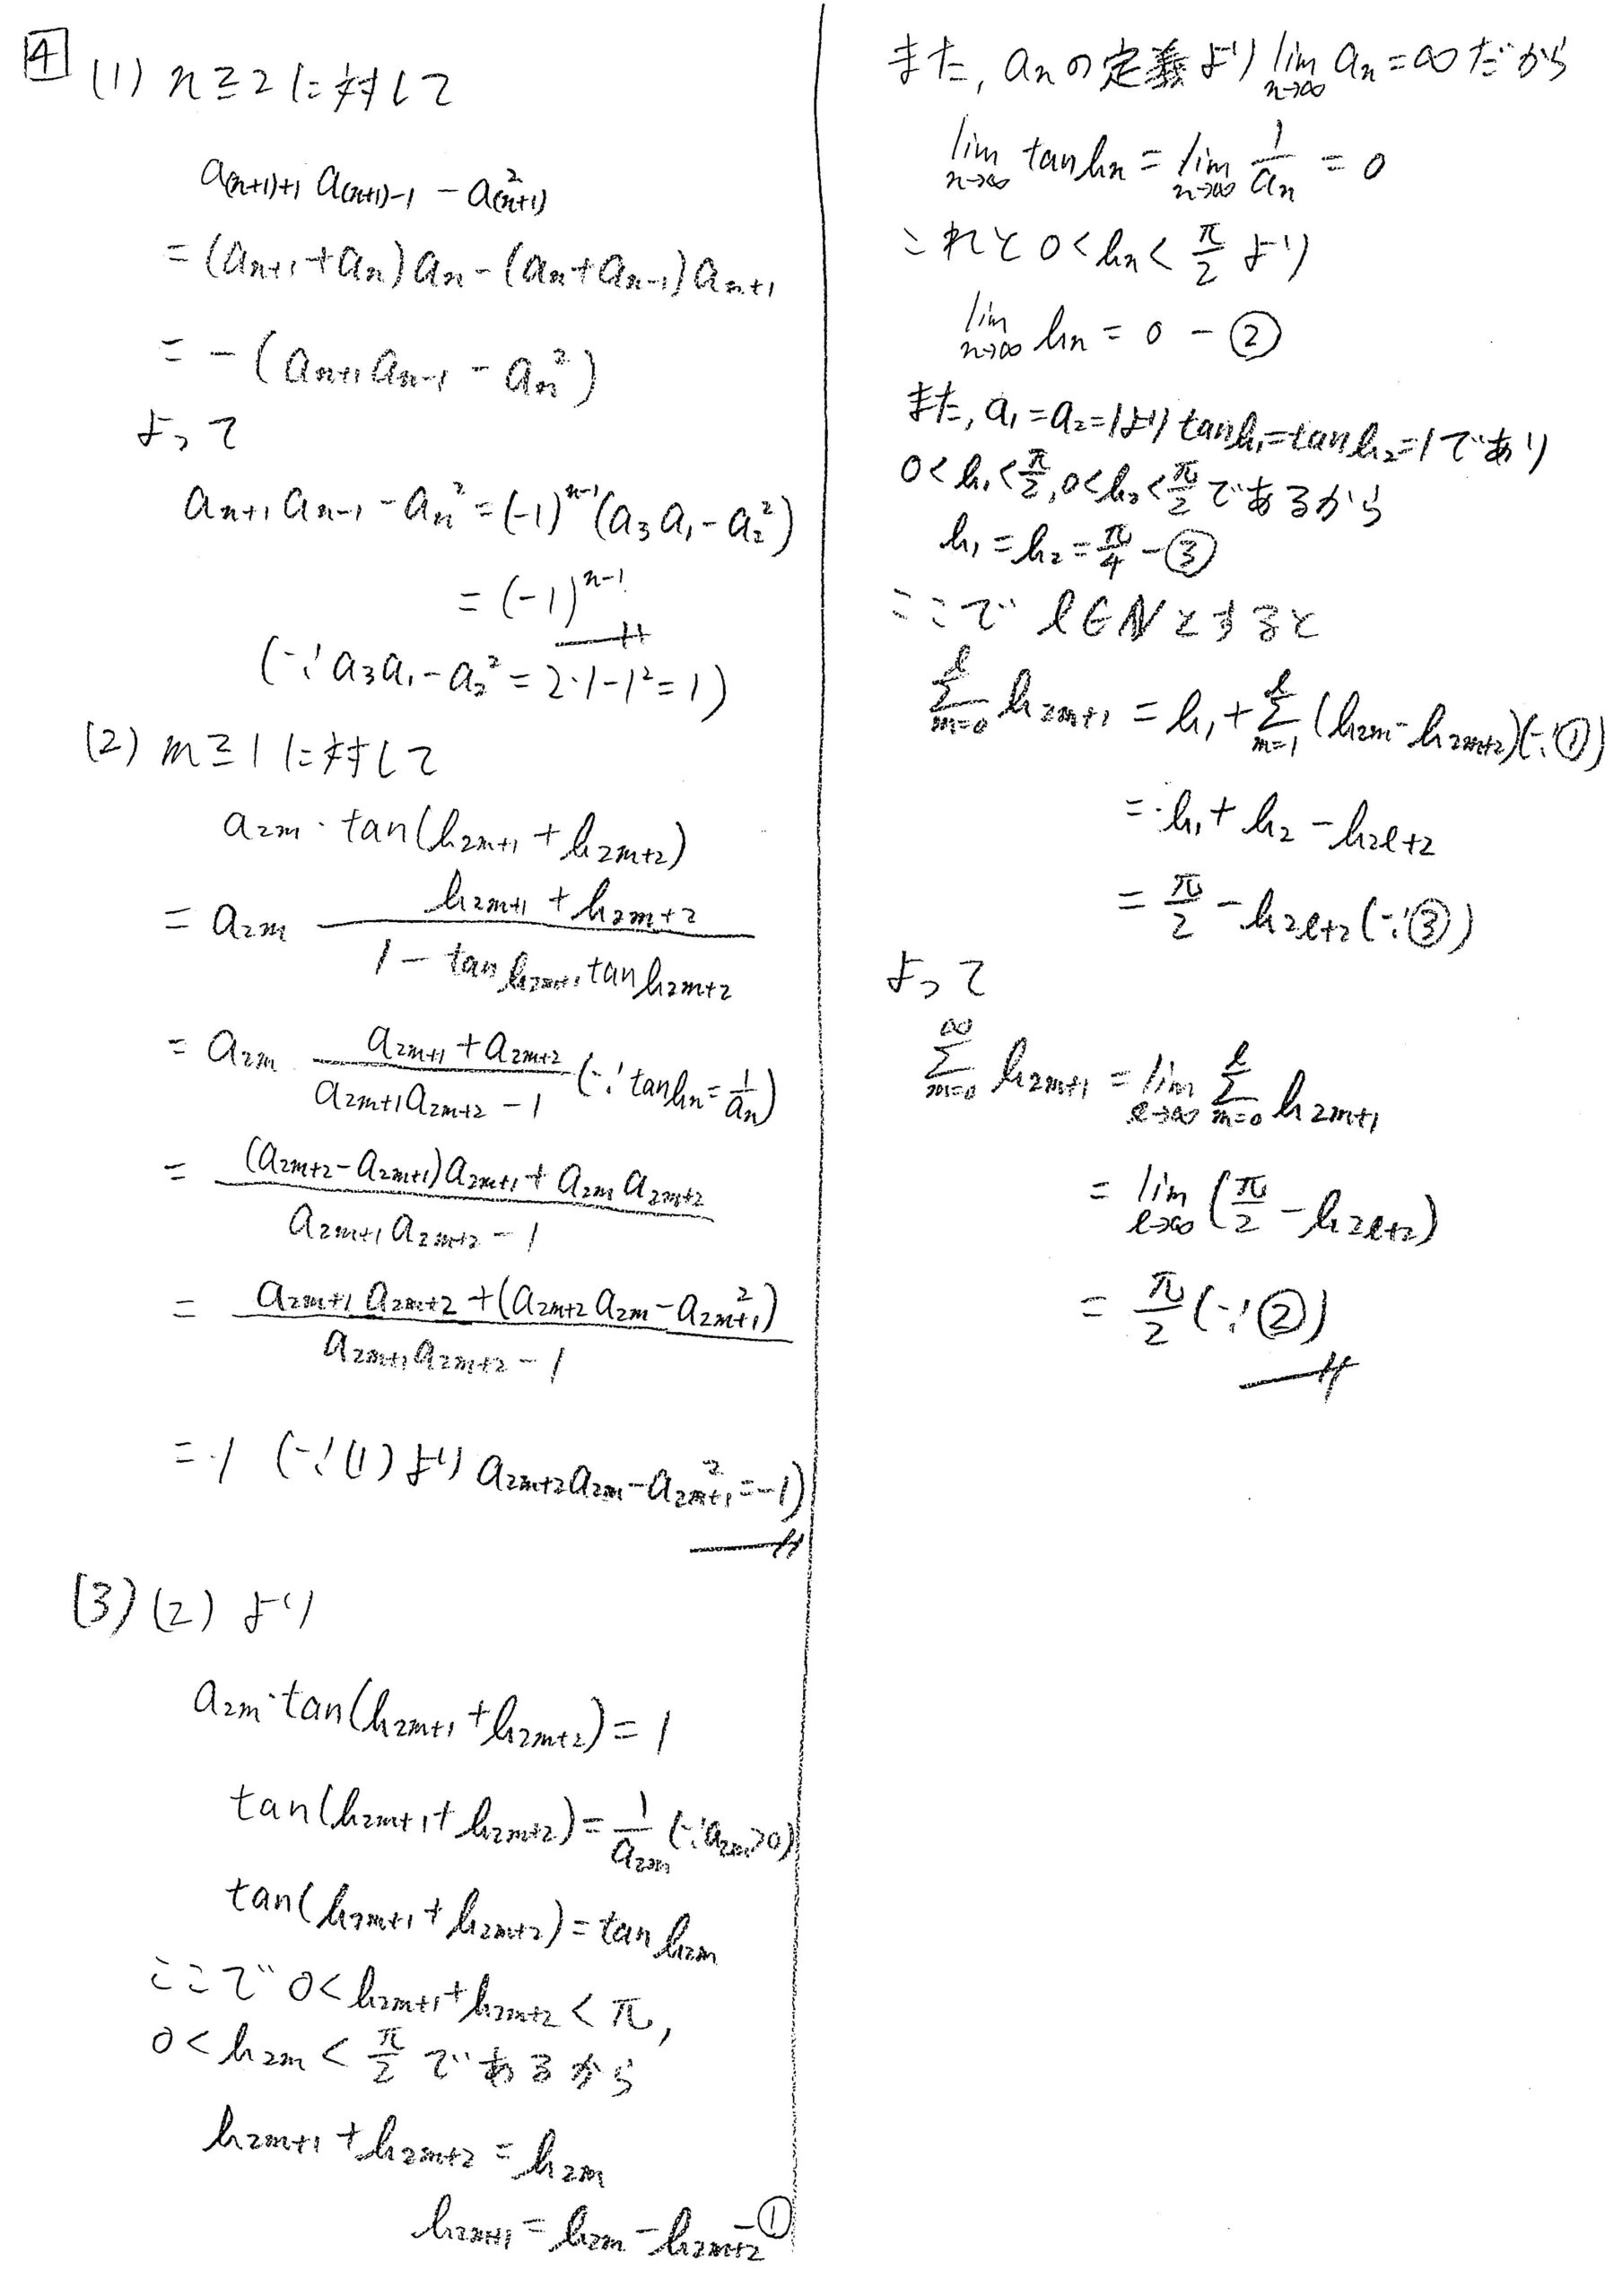 4
(1) n≧2に対して
a(n+1)+1 a(n+1)-1 - a(n+1)²
= (an+1+an)an-(an+an-1)an+1
= -(an+1an-1 - an²)
よって
an+1an-1 - an² = (-1)ⁿ⁻¹(a3a1-a2²)
= (-1)ⁿ⁻¹
(∵a3a1-a2² = 2·1-1²=1)
(2) m≧1に対して
a2m · tan(h2m+1 + h2m+2)
= a2m (h2m+1 + h2m+2)/(1 - tan h2m+1 tan h2m+2)
= a2m (a2m+1 + a2m+2)/(a2m+1a2m+2 - 1) (∵tan hn = 1/an)
= ((a2m+2 - a2m+1)a2m+1 + a2m a2m+2)/(a2m+1 a2m+2 - 1)
= (a2m+1 a2m+2 + (a2m+2 a2m - a2m+1²))/(a2m+1a2m+2 - 1)
= 1 (∵(1)より a2m+2a2m - a2m+1² = -1)
(3) (2)より
a2m·tan(h2m+1 + h2m+2) = 1
tan(h2m+1 + h2m+2) = 1/a2m (∵a2m>0)
tan(h2m+1 + h2m+2) = tan h2m
ここで 0<h2m+1+h2m+2<π,
0<h2m<π/2 であるから
h2m+1 + h2m+2 = h2m
h2m+1 = h2m - h2m+2 -①
また, anの定義より lim n→∞ an = ∞だから
lim n→∞ tan hn = lim n→∞ 1/an = 0
これと 0<hn<π/2 より
lim n→∞ hn = 0 -②
また, a1=a2=1より tan h1=tan h2=1であり
0<h1<π/2, 0<h2<π/2であるから
h1=h2=π/4 -③
ここで l∈Nとすると
Σ m=0 l h2m+1 = h1 + Σ m=1 l (h2m - h2m+2) (∵①)
= h1 + h2 - h2l+2
= π/2 - h2l+2 (∵③)
よって
Σ m=0 ∞ h2m+1 = lim l→∞ Σ m=0 l h2m+1
= lim l→∞ (π/2 - h2l+2)
= π/2 (∵②)